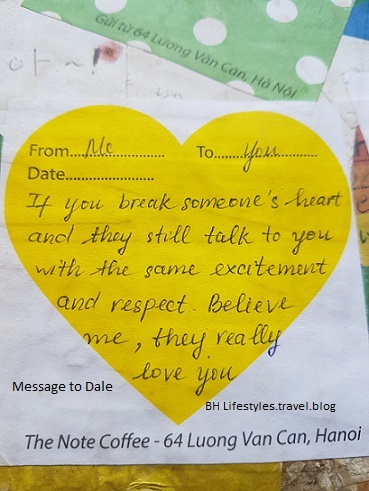 Gửi từ 64 Lương Văn Can, Hà Nội
From Me To You
Date
If you break someone's heart
and they still talk to you
with the same excitement
and respect. Believe
me, they really
love you
Message to Dale
BH Lifestyles.travel.blog
The Note Coffee - 64 Luong Van Can, Hanoi